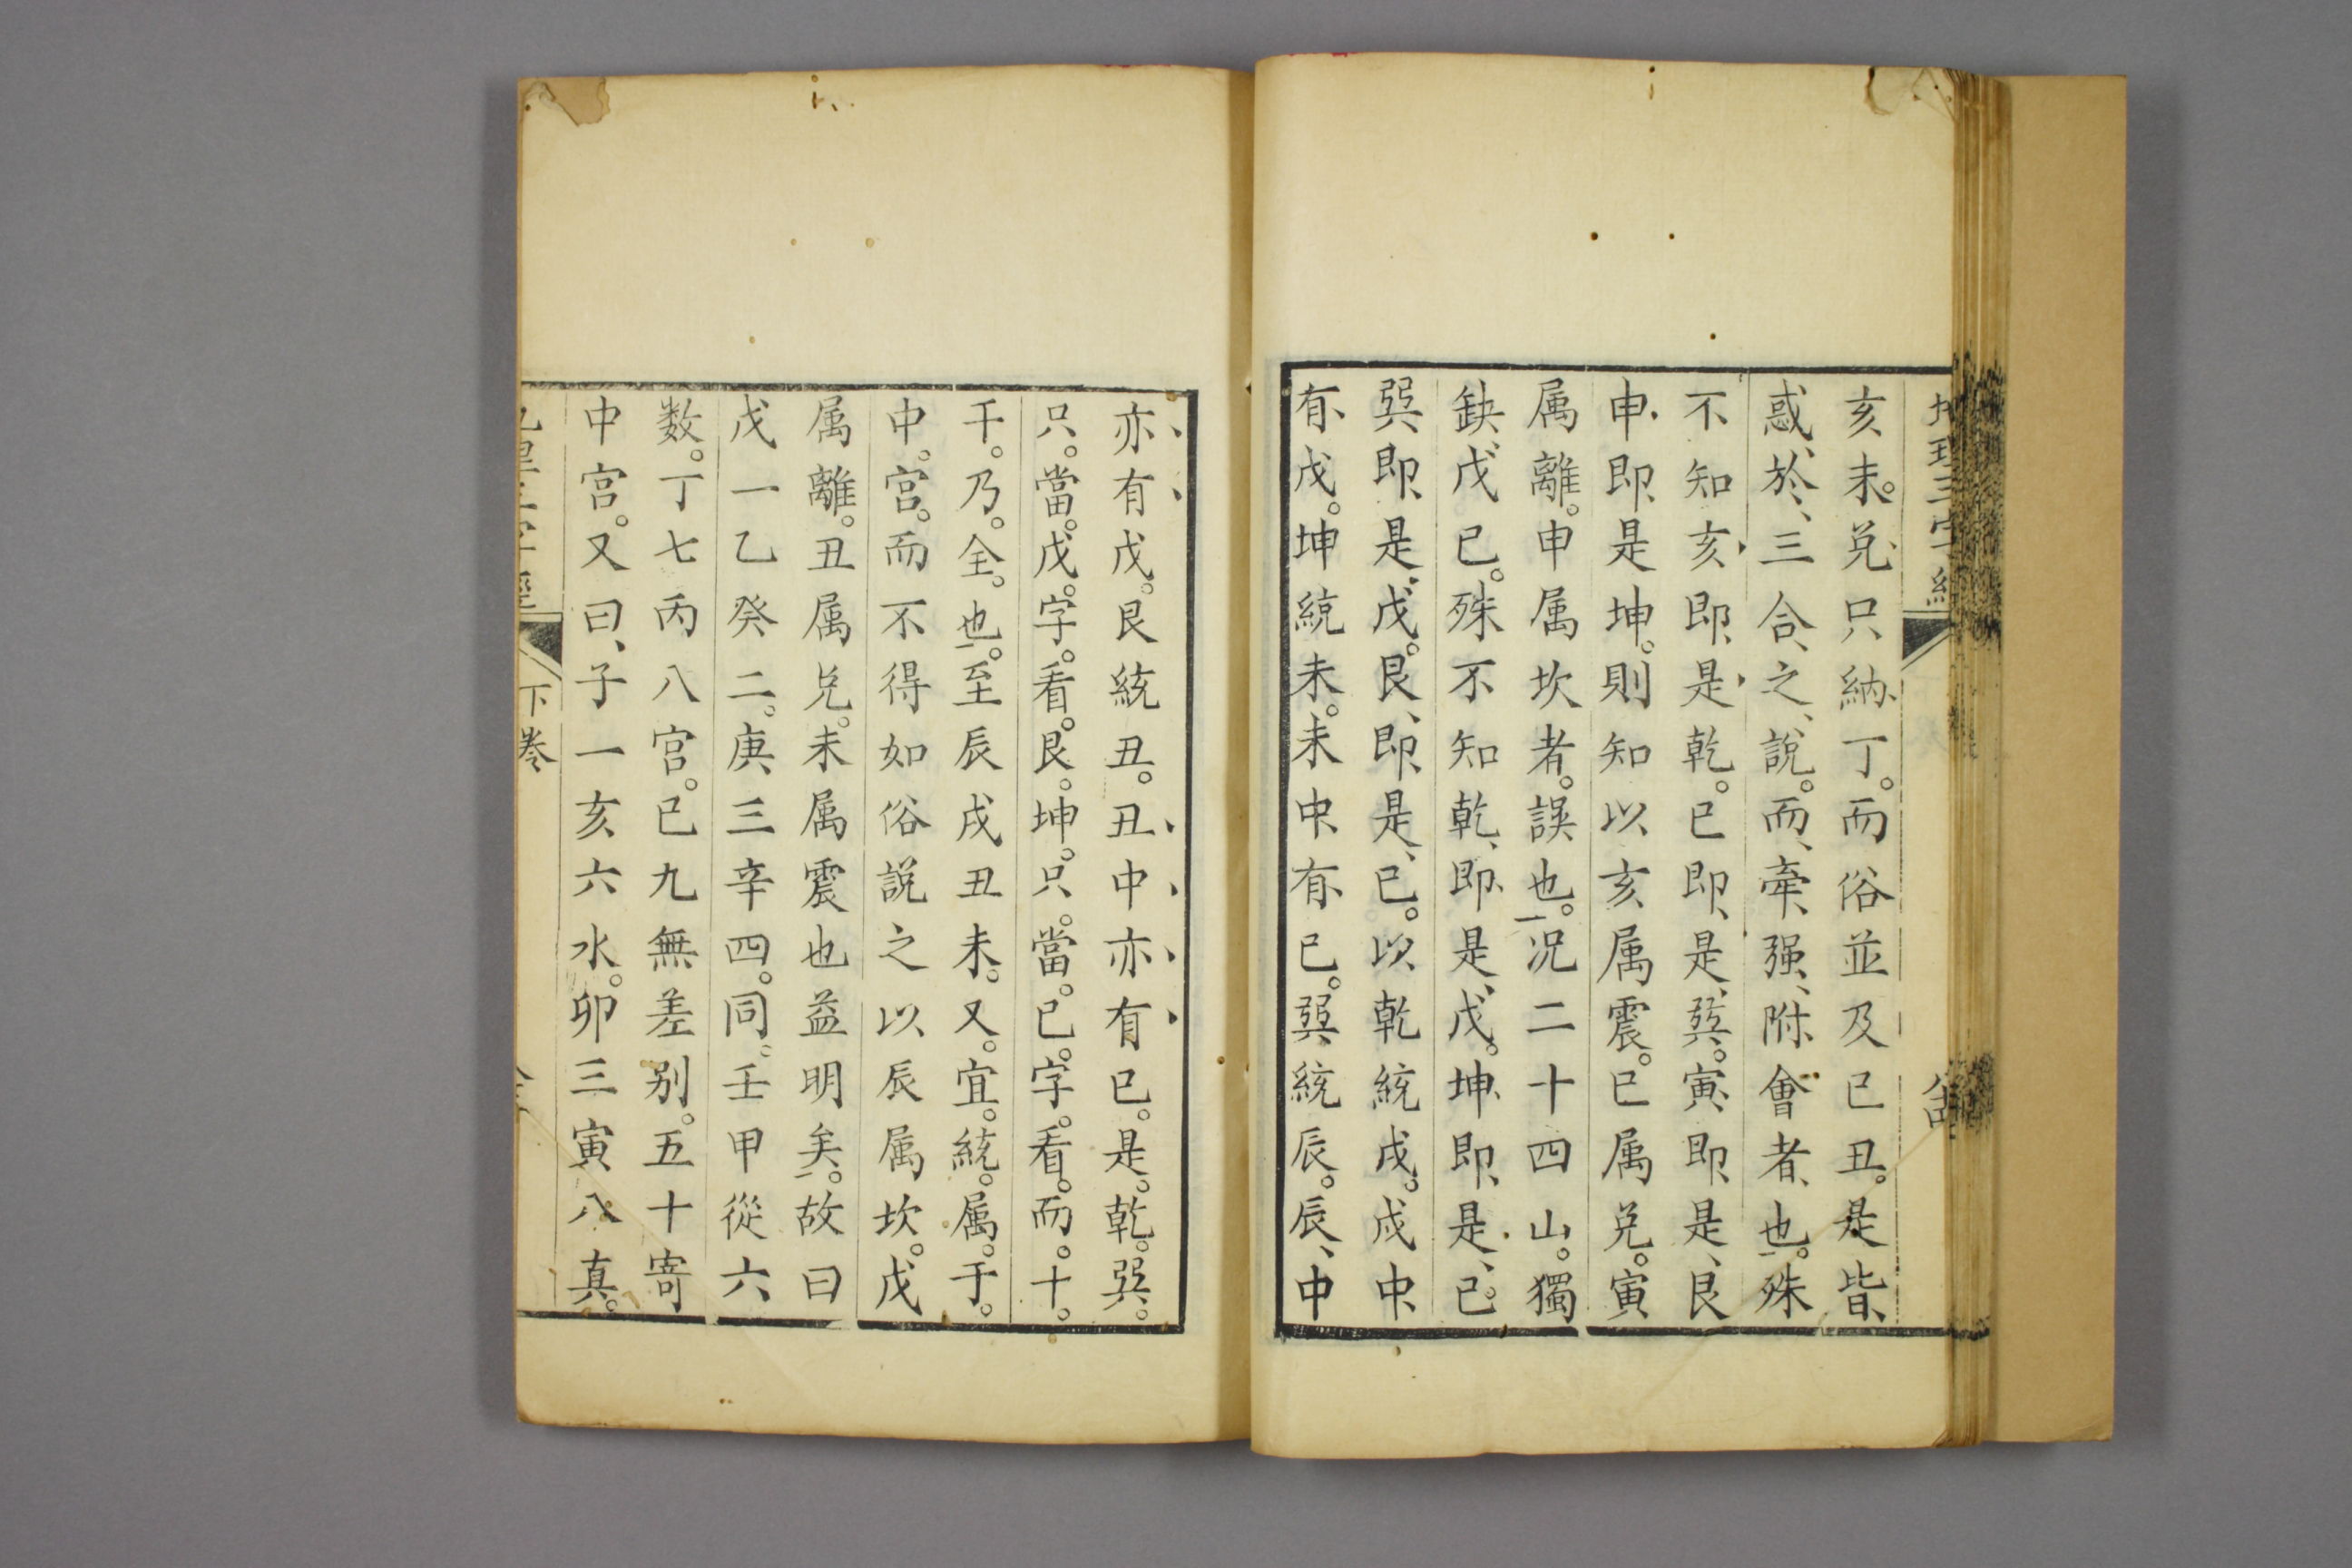 地理三字經
亥未。兌只納丁。而俗並及巳丑。是皆
惑於三合之說。而牽强附會者也。殊
不知亥即是乾。巳即是巽。寅即是艮
申即是坤。則知以亥属震。巳属兌。寅
属離。申属坎者。誤也。况二十四山。獨
缺戊己。殊不知乾即是戊。坤即是己。
巽即是戊。艮即是己。以乾統戌。戌中
有戊。坤統未。未中有己。巽統辰。辰中
亦有戊。艮統丑。丑中亦有己。是乾。巽。
只。當。戊。字。看。艮。坤。只。當。己。字。看。而。十。
干。乃。全。也。至辰戌丑未。又。宜。統。属。于。
中。宮。而不得如俗說之以辰属坎。戌
属離。丑属兌。未属震也益明矣。故曰
戊一乙癸二。庚三辛四。同。壬甲從六
数。丁七丙八宮。己九無差别。五十寄
中宮。又曰、子一亥六水。卯三寅八真。
下巻